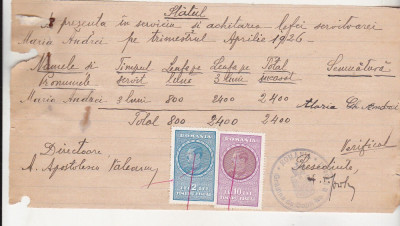 Statul
de prezenta în serviciu si achitarea lefei servitoarei
Maria Andrei pe trimestrul Aprilie 1926
Numele si Timpul Leafa pe Leafa pe Total Semnătura
Pronumele servit 1 luna 3 luni incasat
Maria Andrei 3 luni 800 2400 2400 Maria Andrei
Total 800 2400 2400
Directoare Verificat
A. Apostolescu Presedinte
ROMANIA ROMANIA
2 LEI 10 LEI